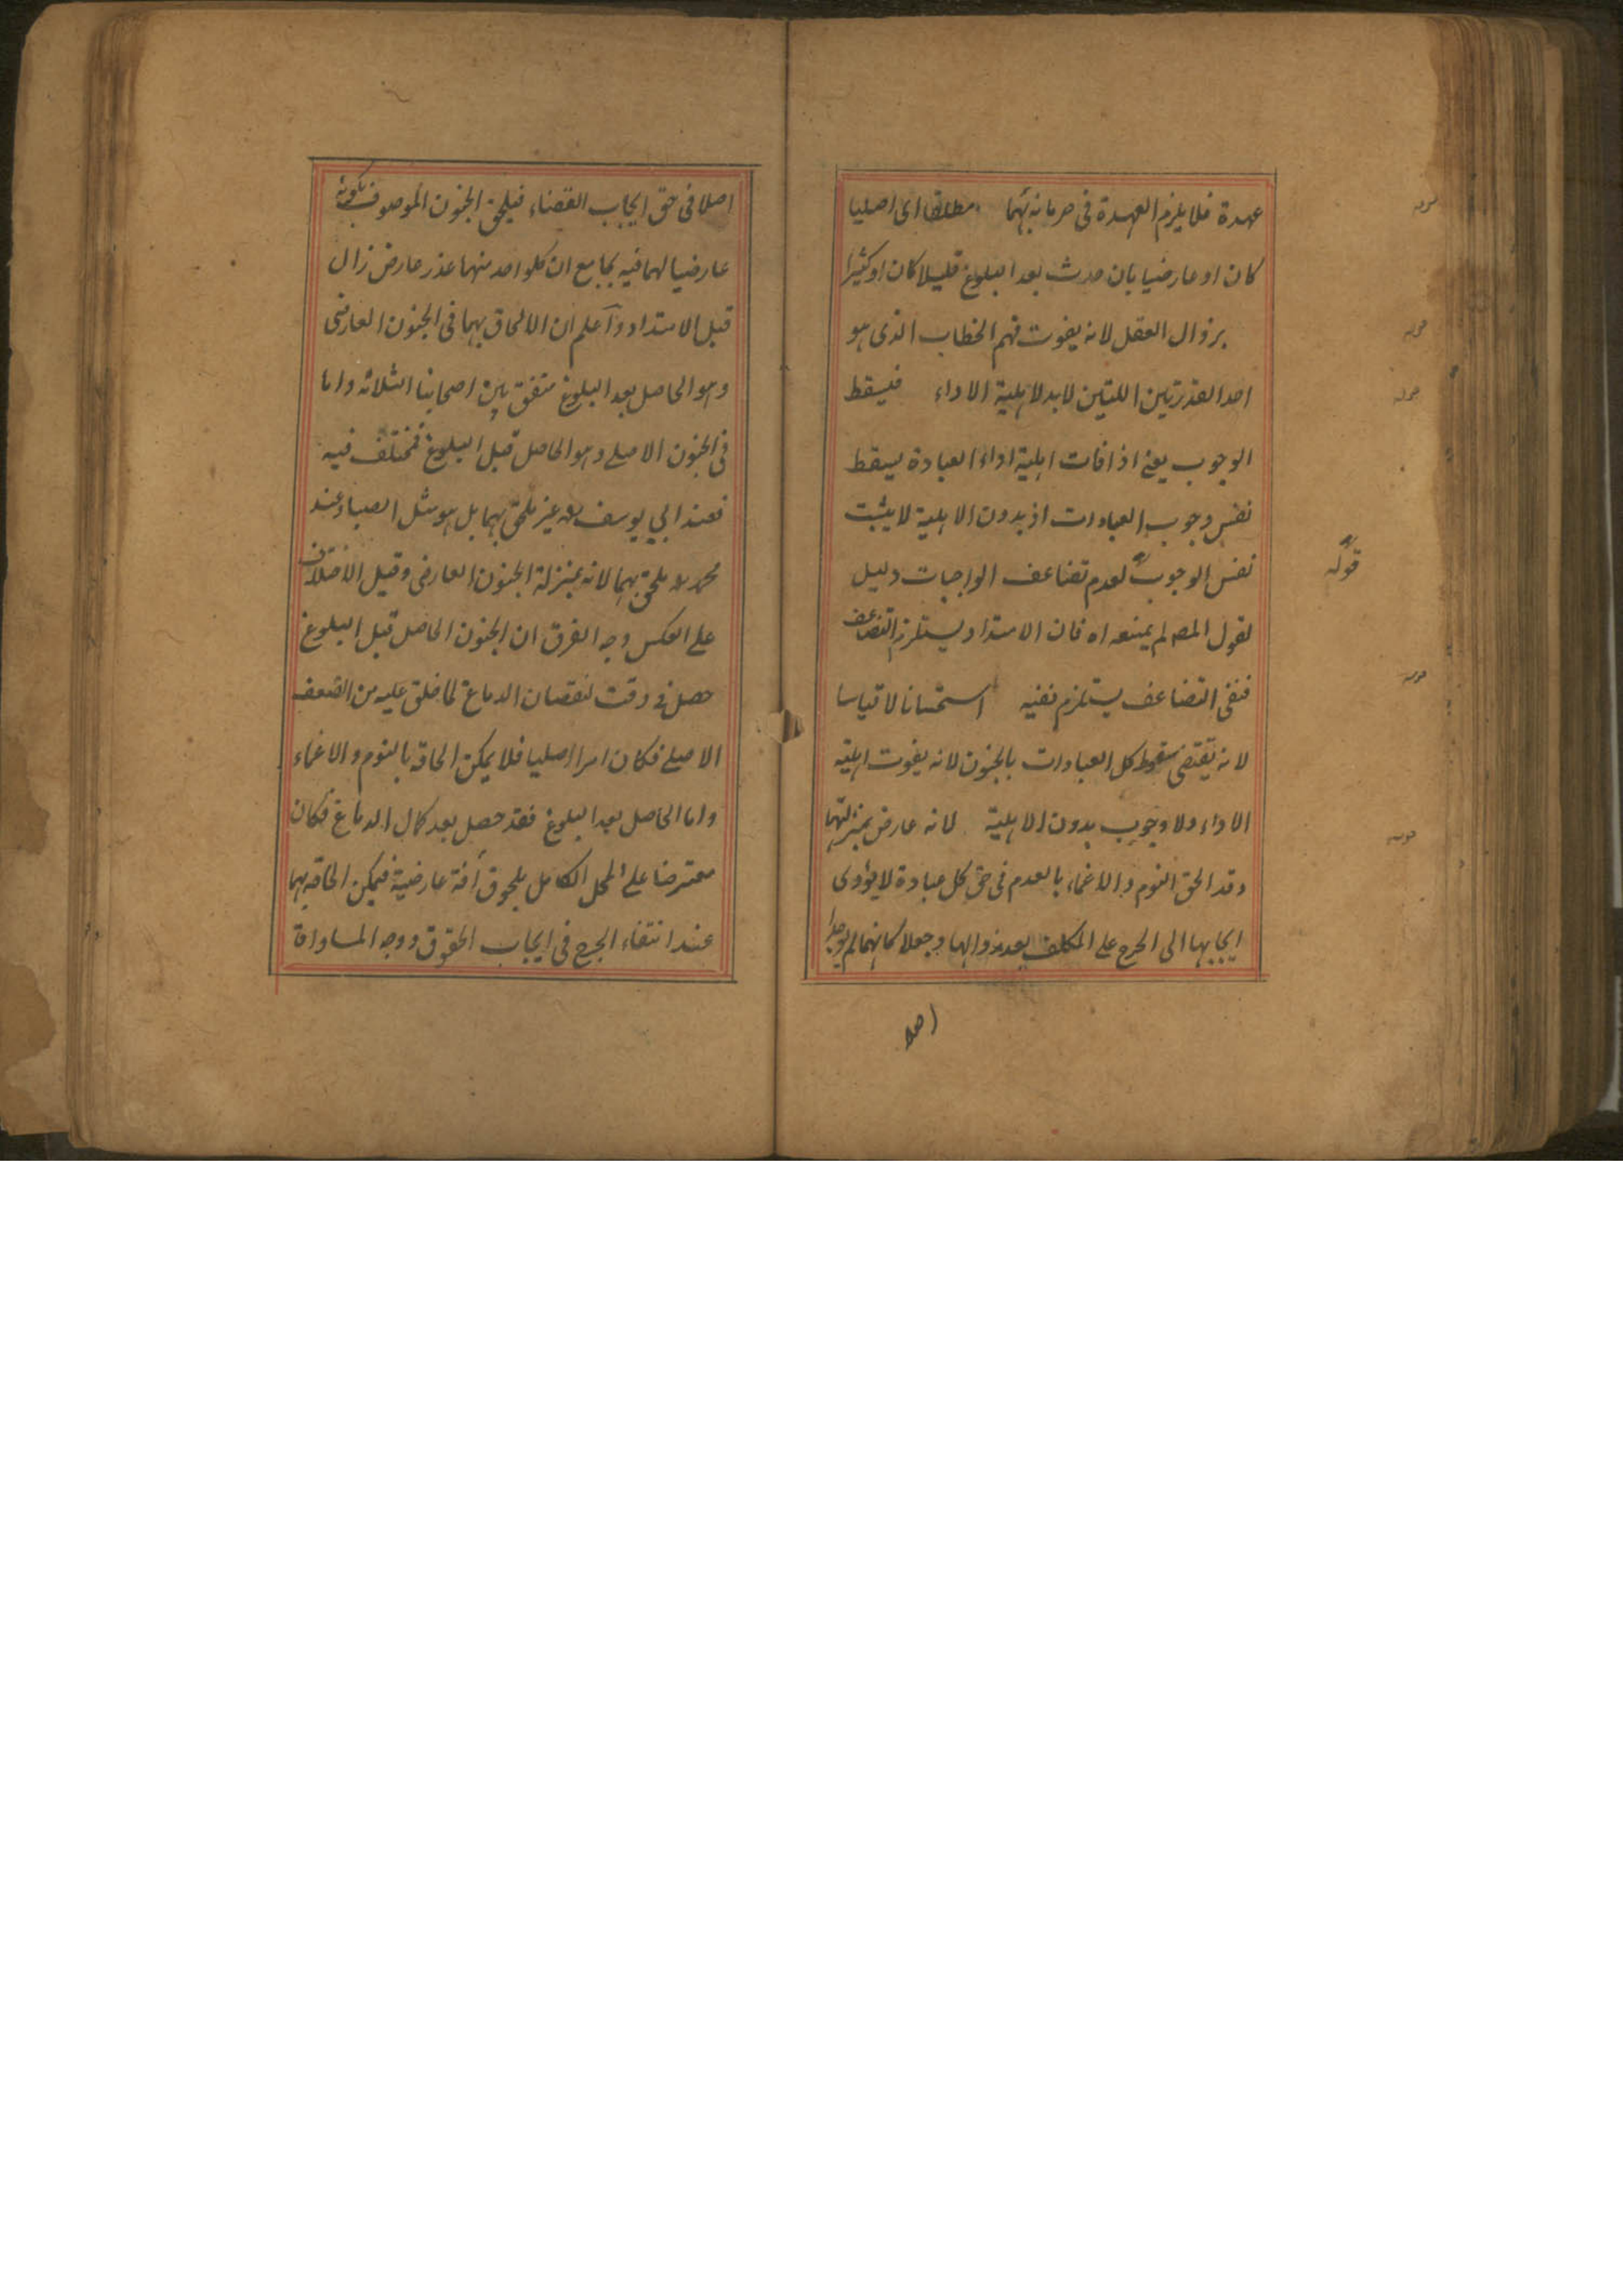 عهدة فلا يلزم العهدة فى حرمانه بهما مطلقا اى اصليا
كان او عارضيا بان حدث بعد البلوغ قليلا كان او كثيرا
بزوال العقل لانه يفوت فهم الخطاب الذى هو
احد القدرتين اللتين لابد لاهلية الاداء فيسقط
الوجوب يعنى اذا فات اهلية اداء العبادة يسقط
نفس وجوب العبادات اذ بدون الاهلية لا يثبت
نفس الوجوب لعدم تضاعف الواجبات دليل
لقول المصـ لم يمنعه اه فان الامتداد يستلزم التضاعف
فنفى التضاعف يستلزم نفيه استحسانا لا قياسا
لانه يقتضى سقوط كل العبادات بالجنون لانه يفوت اهلية
الاداء ولا وجوب بدون الاهلية لانه عارض بمنزلتهما
وقد الحق النوم والاغماء بالعدم فى حق كل عبادة لا يؤدى
ايجابها الى الحرج على المكلف بعد زوالها وجعلا كانهما لم يوجدا
اصلا
قوله
قوله
قوله
قوله
قوله
قوله
اصلا فى حق ايجاب القضاء فيلحق الجنون الموصوف بكونه
عارضيا لهما فيه بجامع ان كلواحد منهما عذر عارض زال
قبل الامتداد واعلم ان الالحاق بهما فى الجنون العارضى
وهو الحاصل بعد البلوغ متفق بين اصحابنا الثلاثه واما
فى الجنون الاصلے وهو الحاصل قبل البلوغ فمختلف فيه
فعند ابي يوسف رح غير ملحق بهما بل هو مثل الصبا وعند
محمد رح يلحق بهما لانه بمنزلة الجنون العارضى وقيل الاختلاف
على العكس وجه الفرق ان الجنون الحاصل قبل البلوغ
حصل فى وقت نقصان الدماغ لما خلق عليه من الضعف
الاصلے فكان امرا اصليا فلا يمكن الحاقه بالنوم والاغماء
واما الحاصل بعد البلوغ فقد حصل بعد كمال الدماغ فكان
معترضا على المحل الكامل بلحوق أفة عارضية فيمكن الحاقه بهما
عند انتفاء الحرج فى ايجاب الحقوق ووجه المساواة